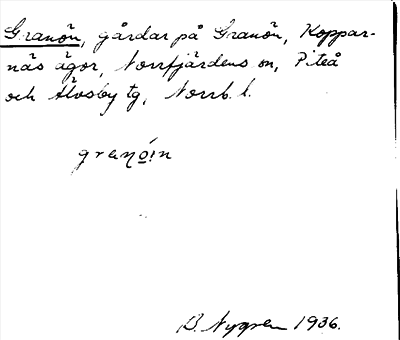 Granön, gårdar på Granön, Koppar-
näs ägor, Norrfjärdens sn, Piteå
och Älvsby tg, Norrb. l.
granö̀n
B. Nygren 1936.